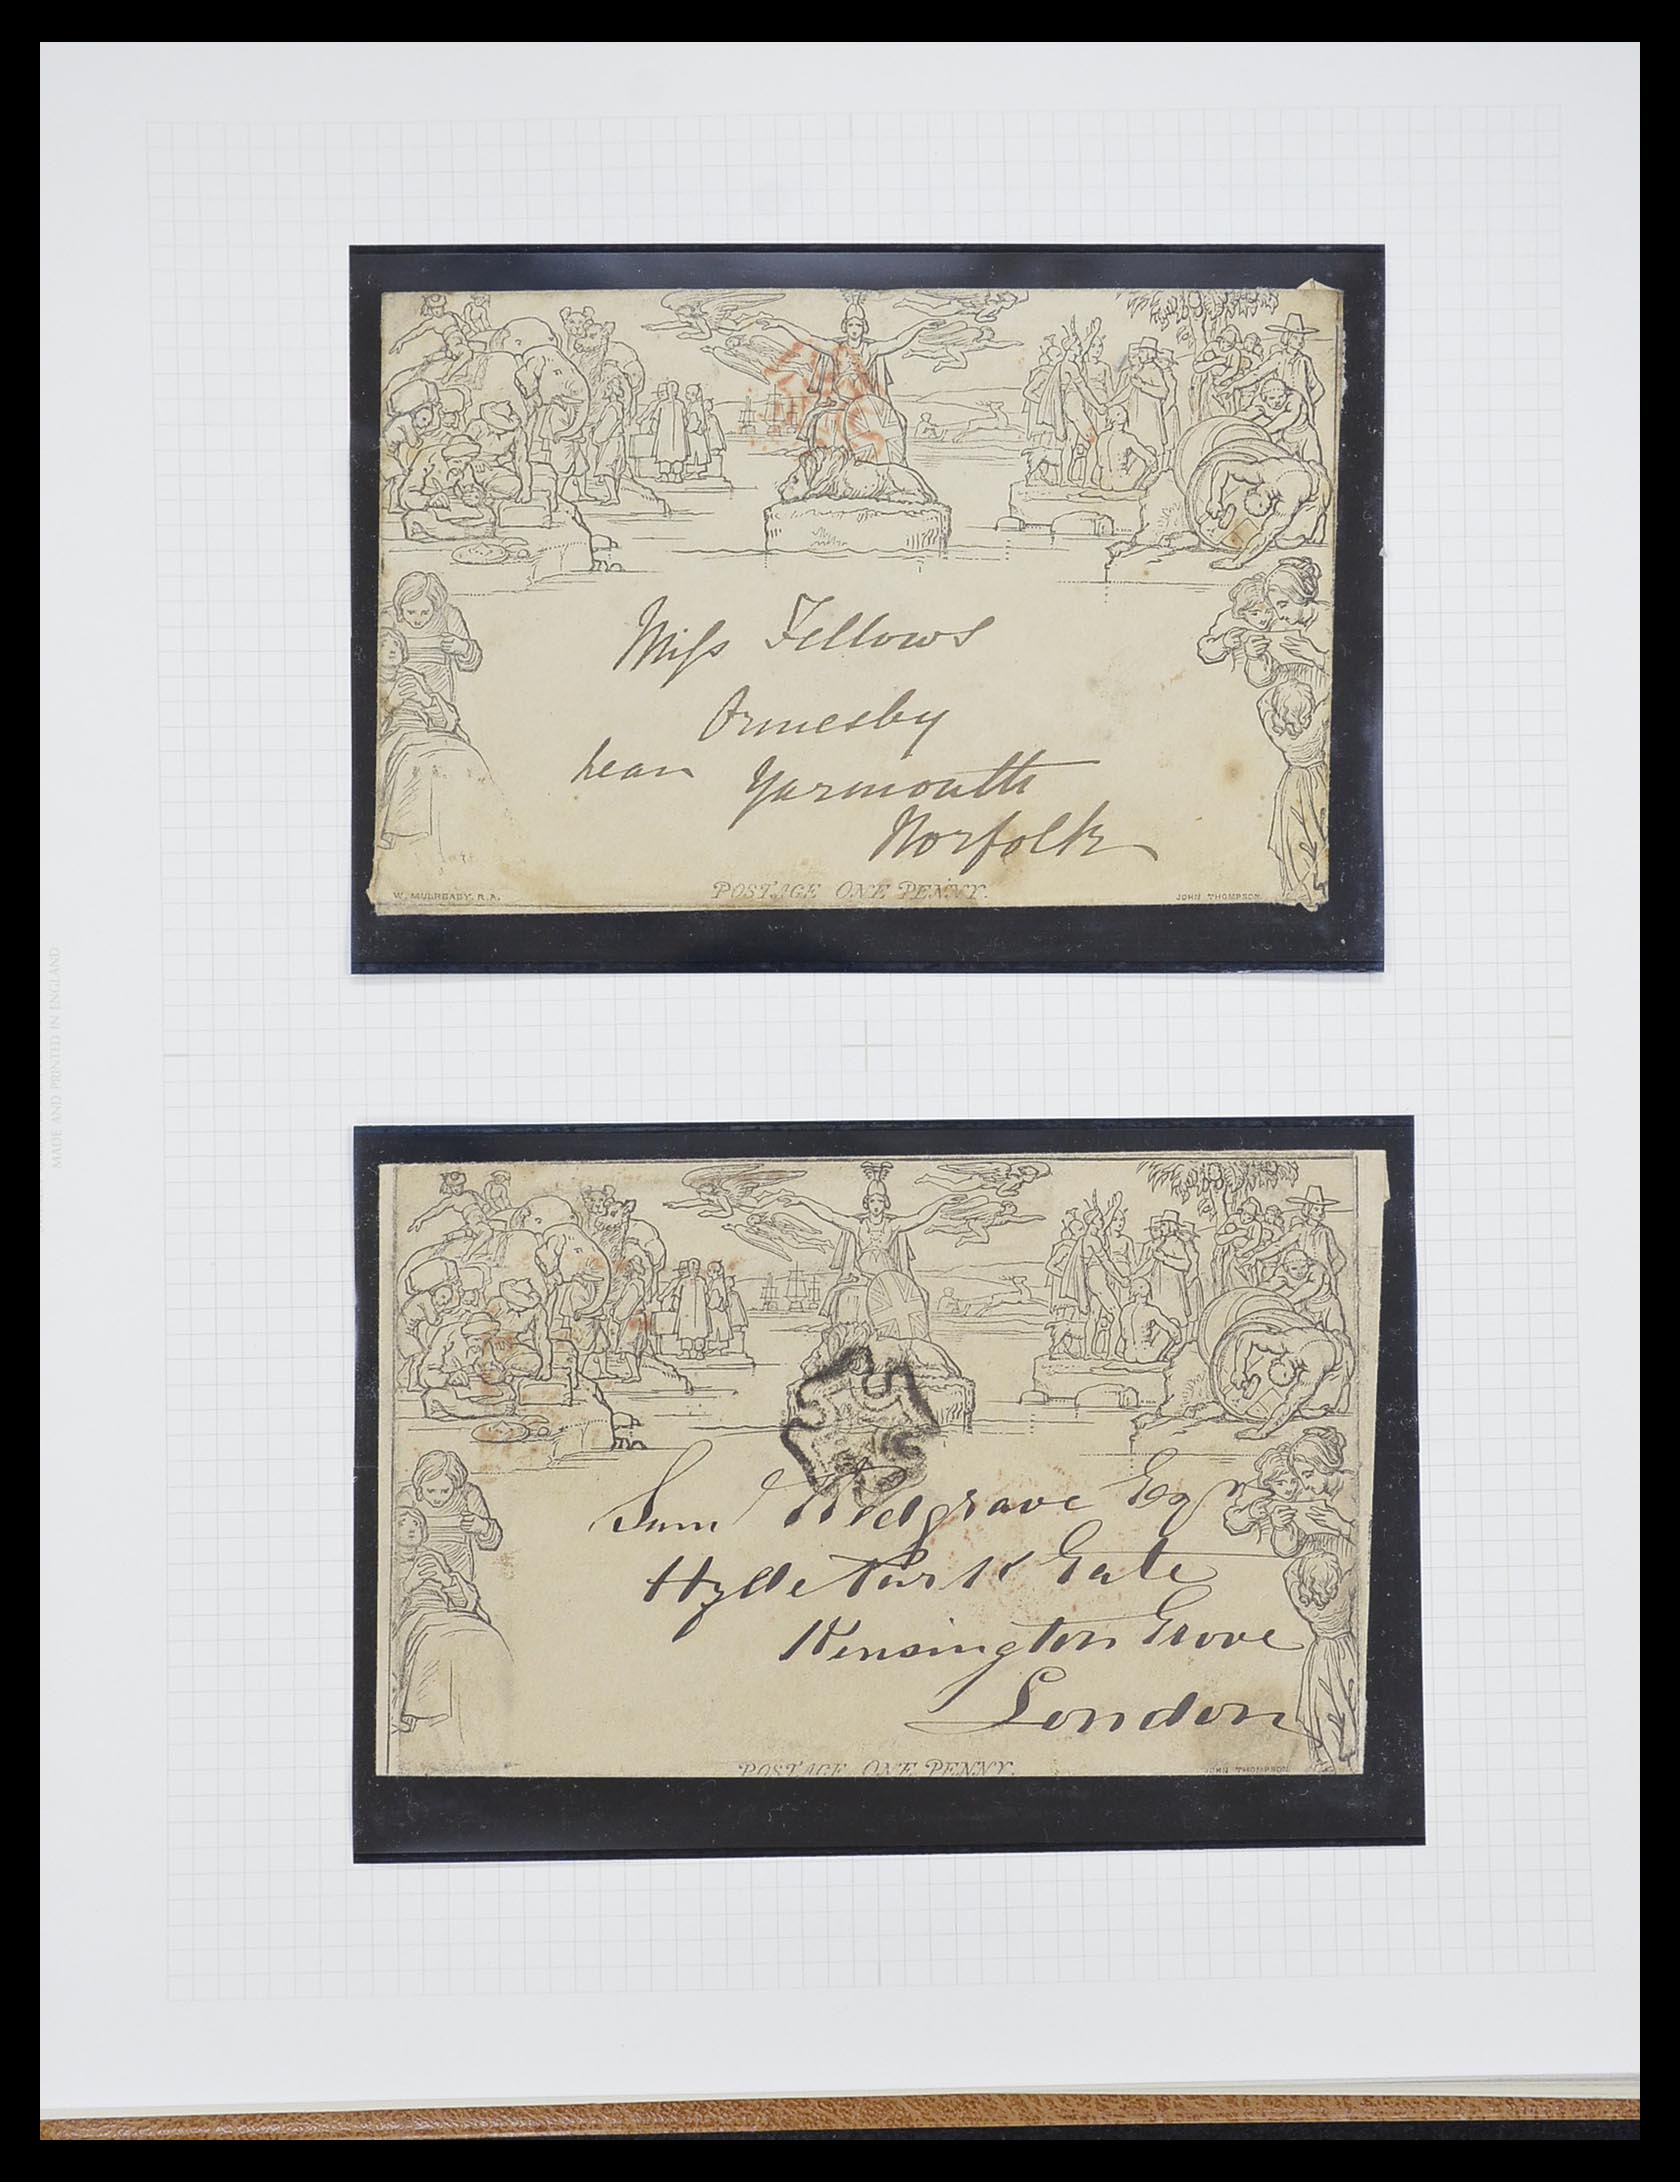 Miss Fellows
Ormesby
near Yarmouth
Norfolk
W. MULREADY, R.A.
POSTAGE ONE PENNY.
JOHN THOMPSON
MADE AND PRINTED IN ENGLAND
Saml Redgrave Esqr
Hyde Park Gate
Kensington Grove
London
POSTAGE ONE PENNY.
JOHN THOMPSON